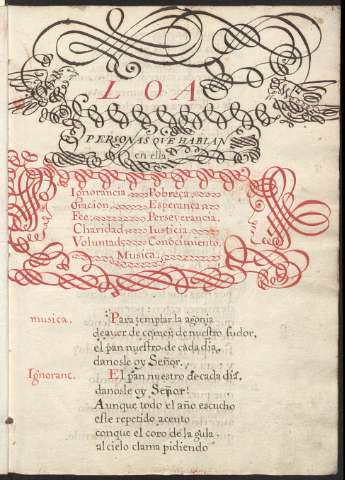 LOA
PERSONAS QVE HABLAN
en ella
Ignorancia Pobreça
Gracion Esperança
Fee Perseverancia.
Charidad Iusticia
Voluntad Conocimiento.
Musica
musica. Para templar la agonia
de aver de comer de nuestro sudor,
el pan nuestro de cada dia,
danosle oy Señor.
Ignoranc. El pan nuestro de cada dia,
danosle oy Señor!
Aunque todo el año escucho
este repetido acento
conque el coro de la gula
al cielo clama pidiendo